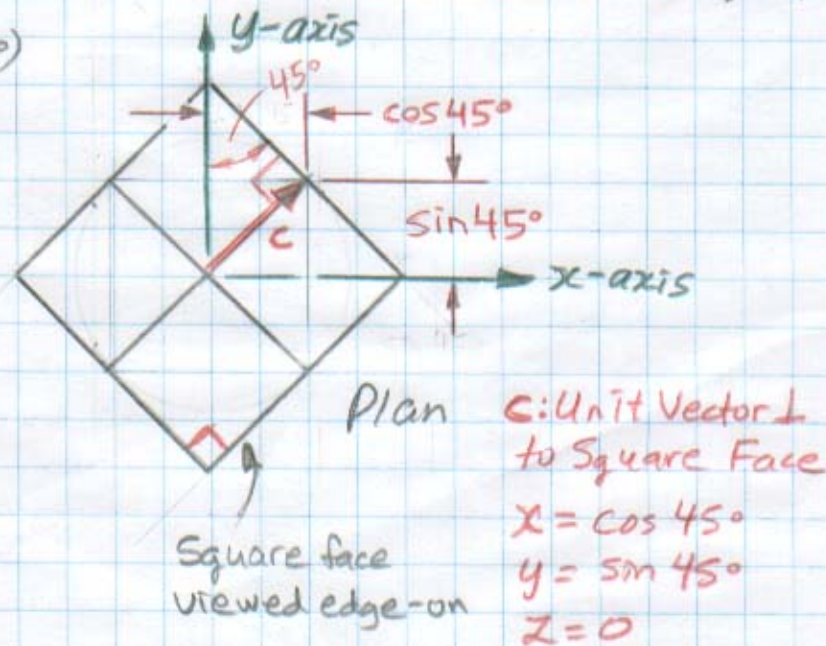 y-axis
45°
cos 45°
sin 45°
c
x-axis
Plan
c: Unit Vector ⊥
to Square Face
x = cos 45°
y = sin 45°
z = 0
Square face
viewed edge-on